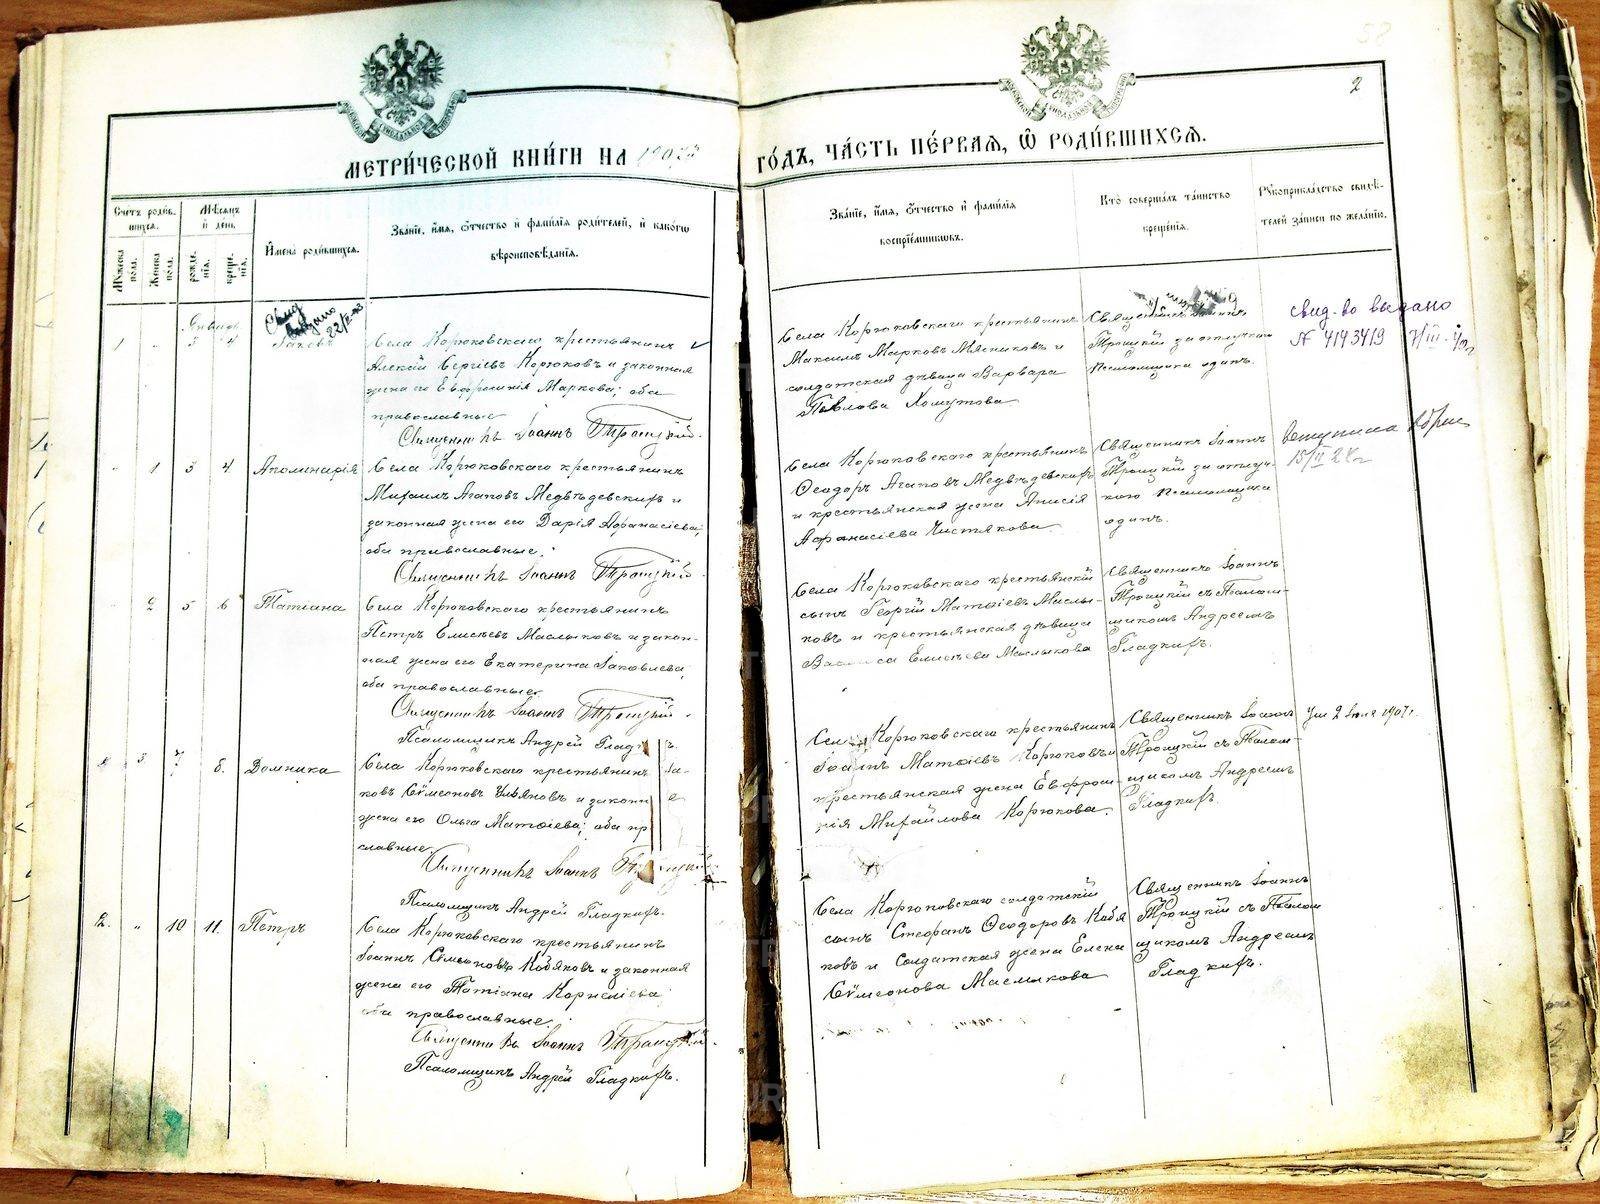 38
2
МЕТРИ́ЧЕСКОЙ КНИ́ГИ НА 1907й
ГО́ДЪ, ЧА́СТЬ ПЕ́РВАЯ, Ѡ҃ РОДИ́ВШИХСЯ.
Сче́тъ роди́в-
шихся.
Мѣ́сяцъ
и день.
Му́жеска
по́ла.
Же́нска
по́ла.
рожде-
нія.
креще-
нія.
И҆мена̀ роди́вшихся.
Зва́ніе, и҆́мя, ѻ҆́тчество и҆ фами́лія роди́телей, и҆ како́гѡ
вѣроисповѣ́данія.
Зва́ніе, и҆́мя, ѻ҆́тчество и҆ фами́лія
воспріе́мниковъ.
Кто̀ соверша́лъ та́инство
креще́нія.
Рꙋкоприкла́дство свидѣ́-
телей за́писи по жела́нію.
Январь
1 - 3 4
Іаковъ
Свид
выдано
Села Корюковскаго крестьянинъ
Алексій Сергіевъ Корюковъ и законная
жена его Евфросинія Маркова; оба
православные
Священникъ Іоаннъ Троицкій.
Села Корюковскаго крестьянинъ
Максимъ Марковъ Мясниковъ и
солдатская дѣвица Варвара
Павлова Хомутова.
Священникъ Іоаннъ
Троицкій за отлучкою
Псаломщика одинъ.
свид-во выдано
№ 4143419
- 1 3 4
Аполинарія
Села Корюковскаго крестьянинъ
Михаилъ Агаповъ Медвѣдевскихъ и
законная жена его Дарія Афанасіева;
оба православные.
Священникъ Іоаннъ Троицкій.
Села Корюковскаго крестьянинъ
Ѳеодоръ Агаповъ Медвѣдевскихъ
и крестьянская жена Анисія
Афанасіева Чистякова.
Священникъ Іоаннъ
Троицкій за отлуч-
кою Псаломщика
одинъ.
вступила въ брак
- 2 5 6
Татіана
Села Корюковскаго крестьянинъ
Петръ Елисѣевъ Маслыковъ и закон-
ная жена его Екатерина Іаковлева;
оба православные.
Священникъ Іоаннъ Троицкій.
Псаломщикъ Андрей Гладкихъ.
Села Корюковскаго крестьянскій
сынъ Георгій Матѳіевъ Маслы-
ковъ и крестьянская дѣвица
Василиса Елисѣева Маслыкова
Священникъ Іоаннъ
Троицкій съ Псалом-
щикомъ Андреемъ
Гладкихъ.
3 7 8.
Домника
Села Корюковскаго крестьянинъ Іа-
ковъ Сѵмеоновъ Ульяновъ и законн
жена его Ольга Матѳіева; оба пр
славные.
Священникъ Іоаннъ Троицкій.
Псаломщикъ Андрей Гладкихъ.
Села Корюковскаго крестьянинъ
Іоаннъ Матѳіевъ Корюковъ и
крестьянская жена Евфроси-
нія Михайлова Корюкова.
Священникъ Іоаннъ
Троицкій съ Псалом-
щикомъ Андреемъ
Гладкихъ.
Ум 2 Іюля 1907г.
2. „ 10 11.
Петръ
Села Корюковскаго крестьянинъ
Іоаннъ Сѵмеоновъ Кобяковъ и законная
жена его Татіана Корнеліева;
оба православные.
Священникъ Іоаннъ Троицкій.
Псаломщикъ Андрей Гладкихъ.
Села Корюковскаго солдатскій
сынъ Стефанъ Ѳеодоровъ Кобя
ковъ и Солдатская жена Елена
Сѵмеонова Маслыкова
Священникъ Іоаннъ
Троицкій съ Псалом
щикомъ Андреемъ
Гладкихъ.